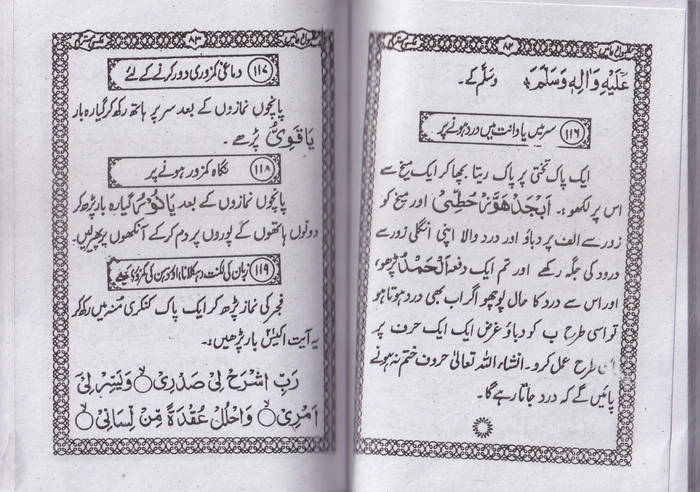 ۸۲
عَلَیْہِ وَاٰلِہٖ وَسَلَّمَ وسلم کے۔
(۱۱۶) سر میں یا دانت میں درد ہونے پر
ایک پاک تختی پر پاک ریتا بچھا کر ایک میخ سے
اس پر لکھو :۔ اَبْجَدْ هَوَّزْ حُطِّیْ اور میخ کو
زور سے الف پر دباؤ اور درد والا اپنی انگلی زور سے
درد کی جگہ رکھے اور تم ایک دفعہ اَلْحَمْدُ پڑھو،
اور اس سے درد کا حال پوچھو اگر اب بھی درد ہوتا ہو
تو اسی طرح ب کو دباؤ غرض ایک ایک حرف پر
اس طرح عمل کرو۔ انشاء اللہ تعالیٰ حروف ختم نہ ہونے
پائیں گے کہ درد جاتا رہے گا۔
۸۳
(۱۱۷) دماغی کمزوری دور کرنے کے لئے
پانچوں نمازوں کے بعد سر پر ہاتھ رکھ کر گیارہ بار
یَا قَوِیُّ پڑھے۔
(۱۱۸) نگاہ کمزور ہونے پر
پانچوں نمازوں کے بعد یَا نُوْرُ گیارہ بار پڑھ کر
دونوں ہاتھوں کے پوروں پر دم کر کے آنکھوں پر پھیر لیں۔
(۱۱۹) زبان کی لکنت، ہکلانا، اور ذہن کی کمزوری کیلئے
فجر کی نماز پڑھ کر ایک پاک کنکری منہ میں رکھ کر
یہ آیت اکیس بار پڑھیں:۔
رَبِّ اشْرَحْ لِیْ صَدْرِیْ وَیَسِّرْ لِیْ
اَمْرِیْ وَاحْلُلْ عُقْدَةً مِّنْ لِّسَانِیْ